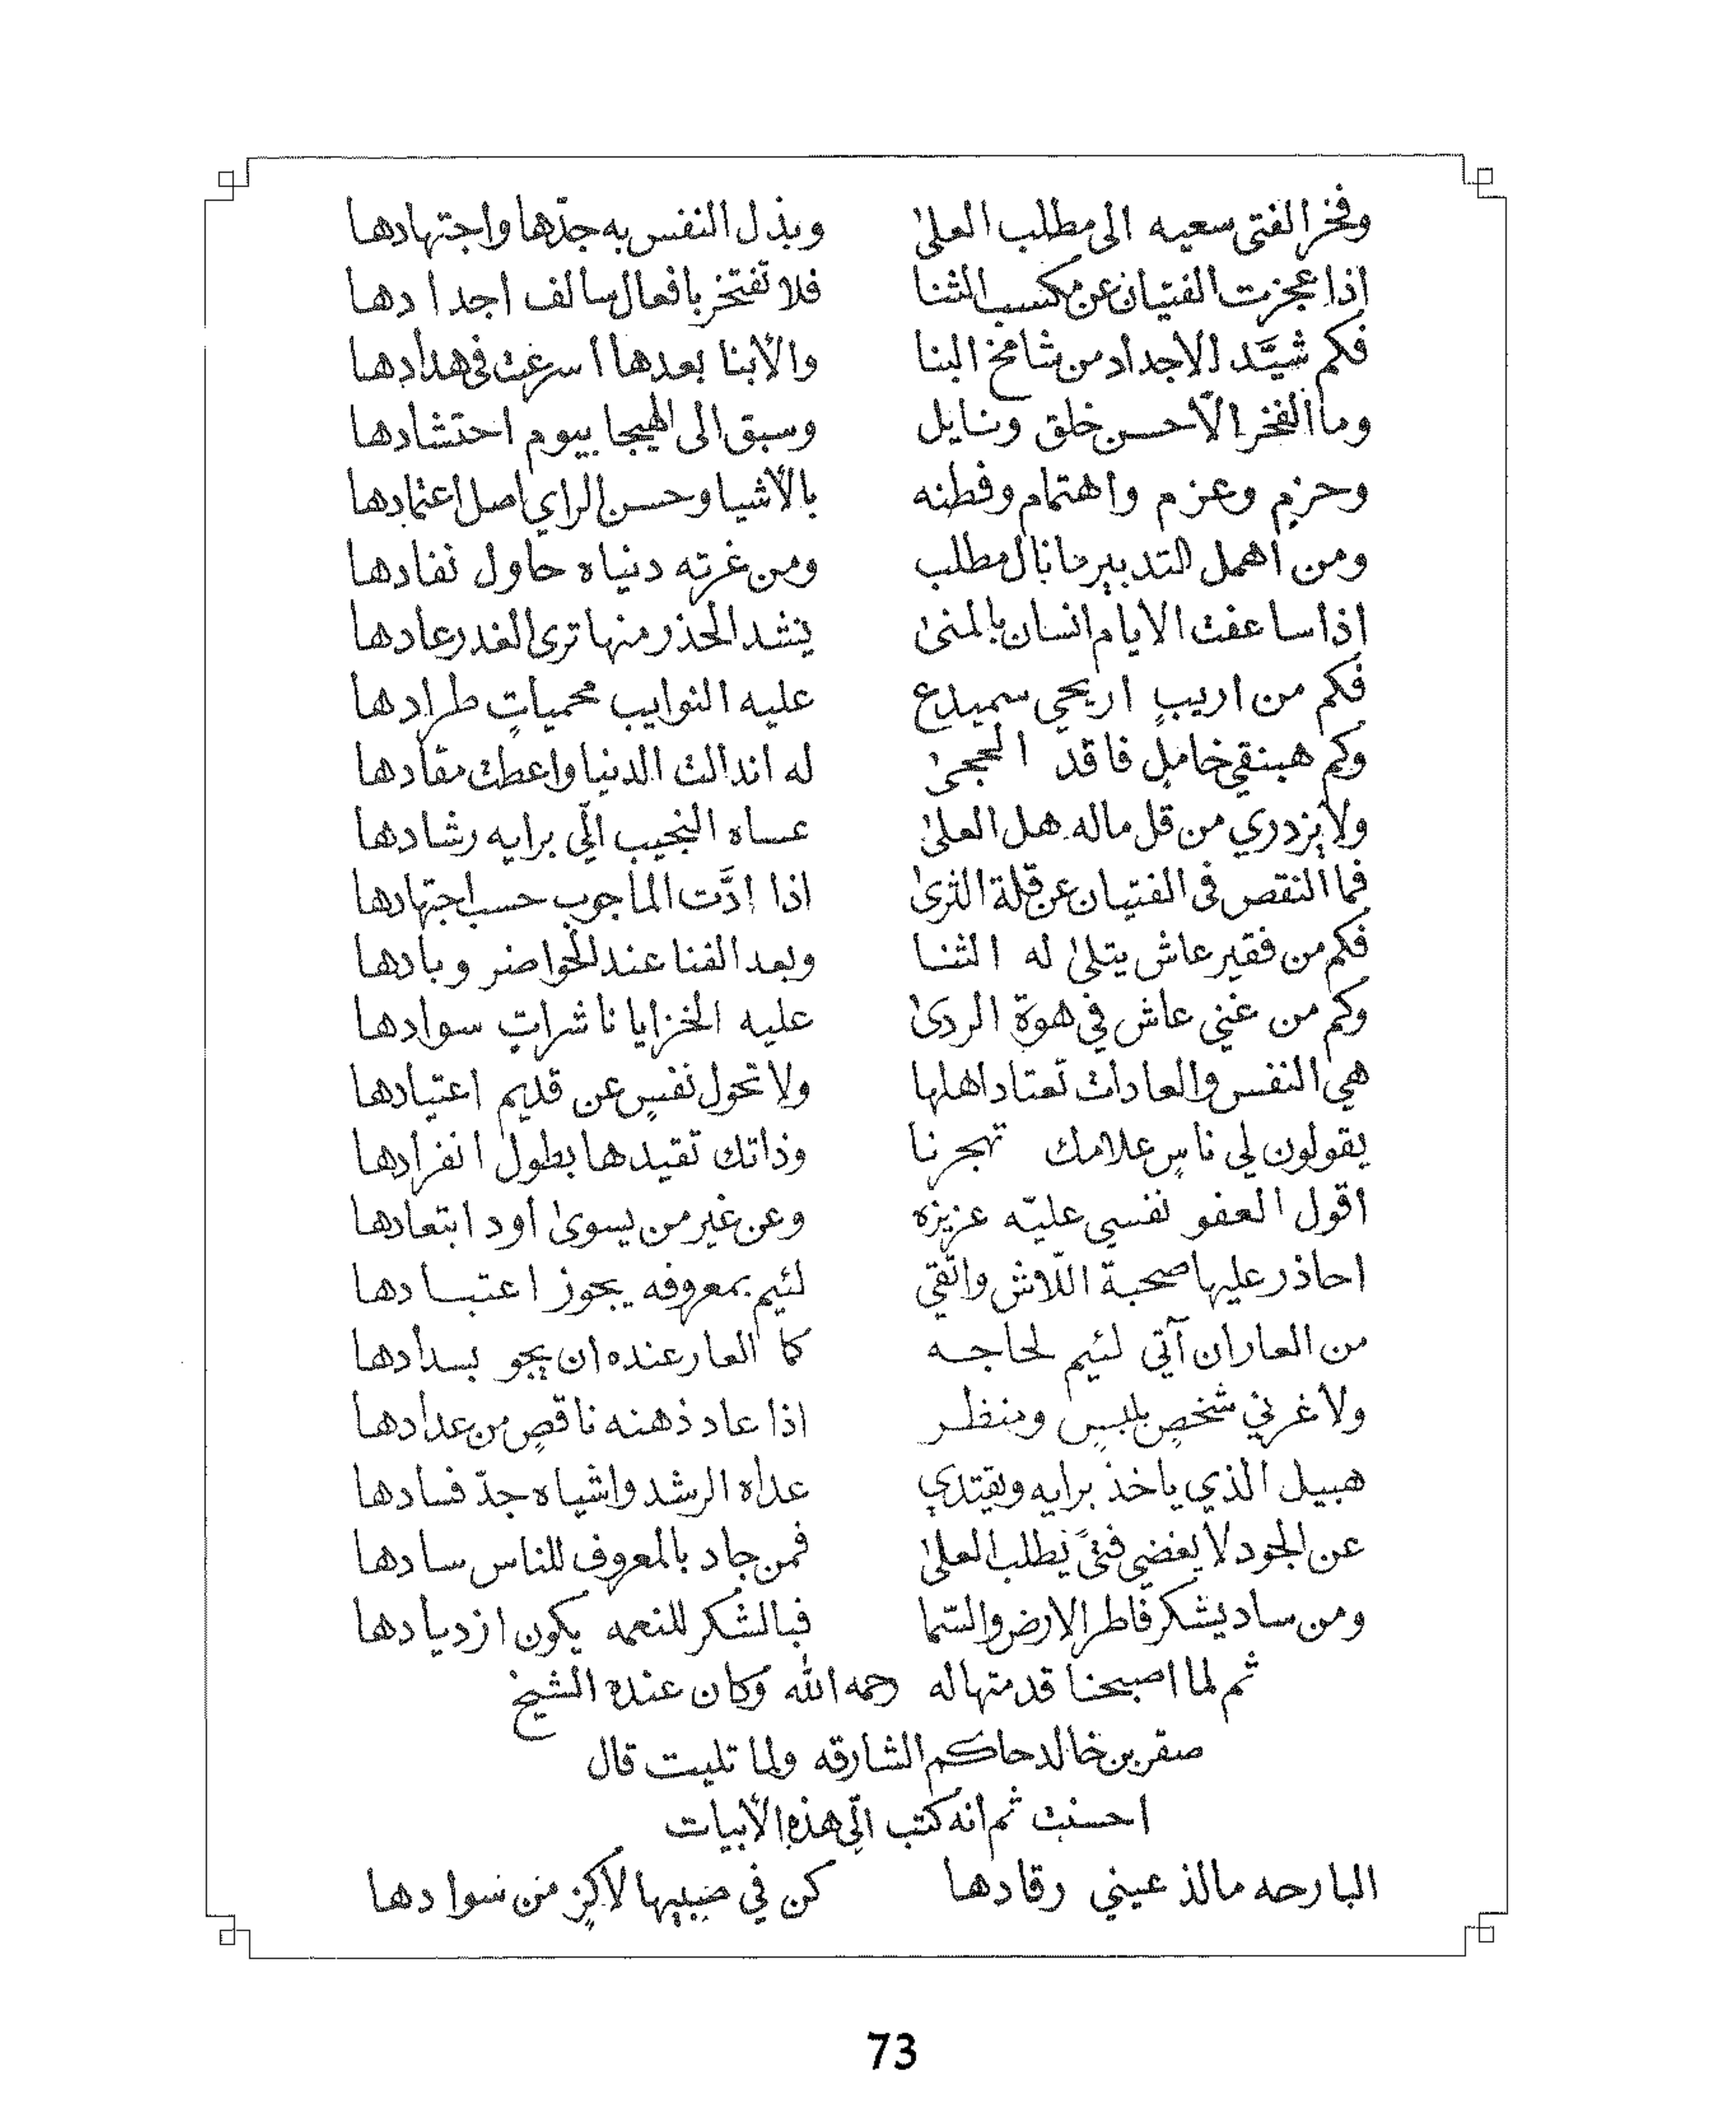 وفخر الفتى سعيه الى مطلب العلىٰ وبذل النفس به جدّها واجتهادها
اذا عجزت الفتيان عن مكسب الثنا فلا تفتخر بافعال سالف اجدادها
فكم شيَّد الاجداد من شامخ البنا والأبنا بعدها اسرعت في هدادها
وما الفخر الّا حسن خلق ونايل وسبق الى الهيجا بيوم احتشادها
وحزم وعزم واهتمام وفطنه بالأشيا وحسن الراي اصل اعتمادها
ومن اهمل التدبير ما نال مطلب ومن غرته دنياه حاول نفادها
اذا ساعفت الايام انسان بالمنىٰ ينشد الحذر منها ترى الغدر عادها
فكم من اريبٍ اريحي سميدع عليه النوايب محمياتٍ طرادها
وكم هبنقي خاملٍ فاقد الحجىٰ له اندالت الدنيا واعطت مقادها
ولا يزدري من قل ماله هل العلىٰ عساه النجيب الّي برايه رشادها
فما النقص في الفتيان عن قلة الثرىٰ اذا ادَّت الماجوب حسب اجتهادها
فكم من فقير عاش يتلىٰ له الثنا وبعد الفنا عند الحواضر وبادها
وكم من غني عاش في هوة الردىٰ عليه الخزايا ناشراتٍ سوادها
هي النفس والعادات تعتاد اهلها ولا تحول نفسٍ عن قديم اعتيادها
يقولون لي ناسٍ علامك تهجرنا وذاتك تقيدها بطول انفرادها
اقول العفو نفسي عليّه عزيزه وعن غير من يسوىٰ أود ابتعادها
احاذر عليها صحبة اللّاش واتّقي لئيم بمعروفه يجوز اعتبادها
من العار ان آتي لئيم لحاجه كما العار عنده ان يجو بسدادها
ولا غرني شخصٍ بلبسٍ ومنظر اذا عاد ذهنه ناقصٍ من عدادها
هبيل الذي ياخذ برايه ويقتدي عداه الرشد واشياه جدّ فسادها
عن الجود لا يغضي فتىً يطلب العلىٰ فمن جاد بالمعروف للناس سادها
ومن ساد يشكر فاطر الارض والسّما فبالشكر للنعمه يكون ازديادها
ثم لما اصبحنا قدمتها له رحمه الله وكان عنده الشيخ
صقر بن خالد حاكم الشارقه ولما تليت قال
احسنت ثم انه كتب الّي هذه الأبيات
البارحه مالذ عيني رقادها كن في صبيها لاكزٍ من سوادها
73